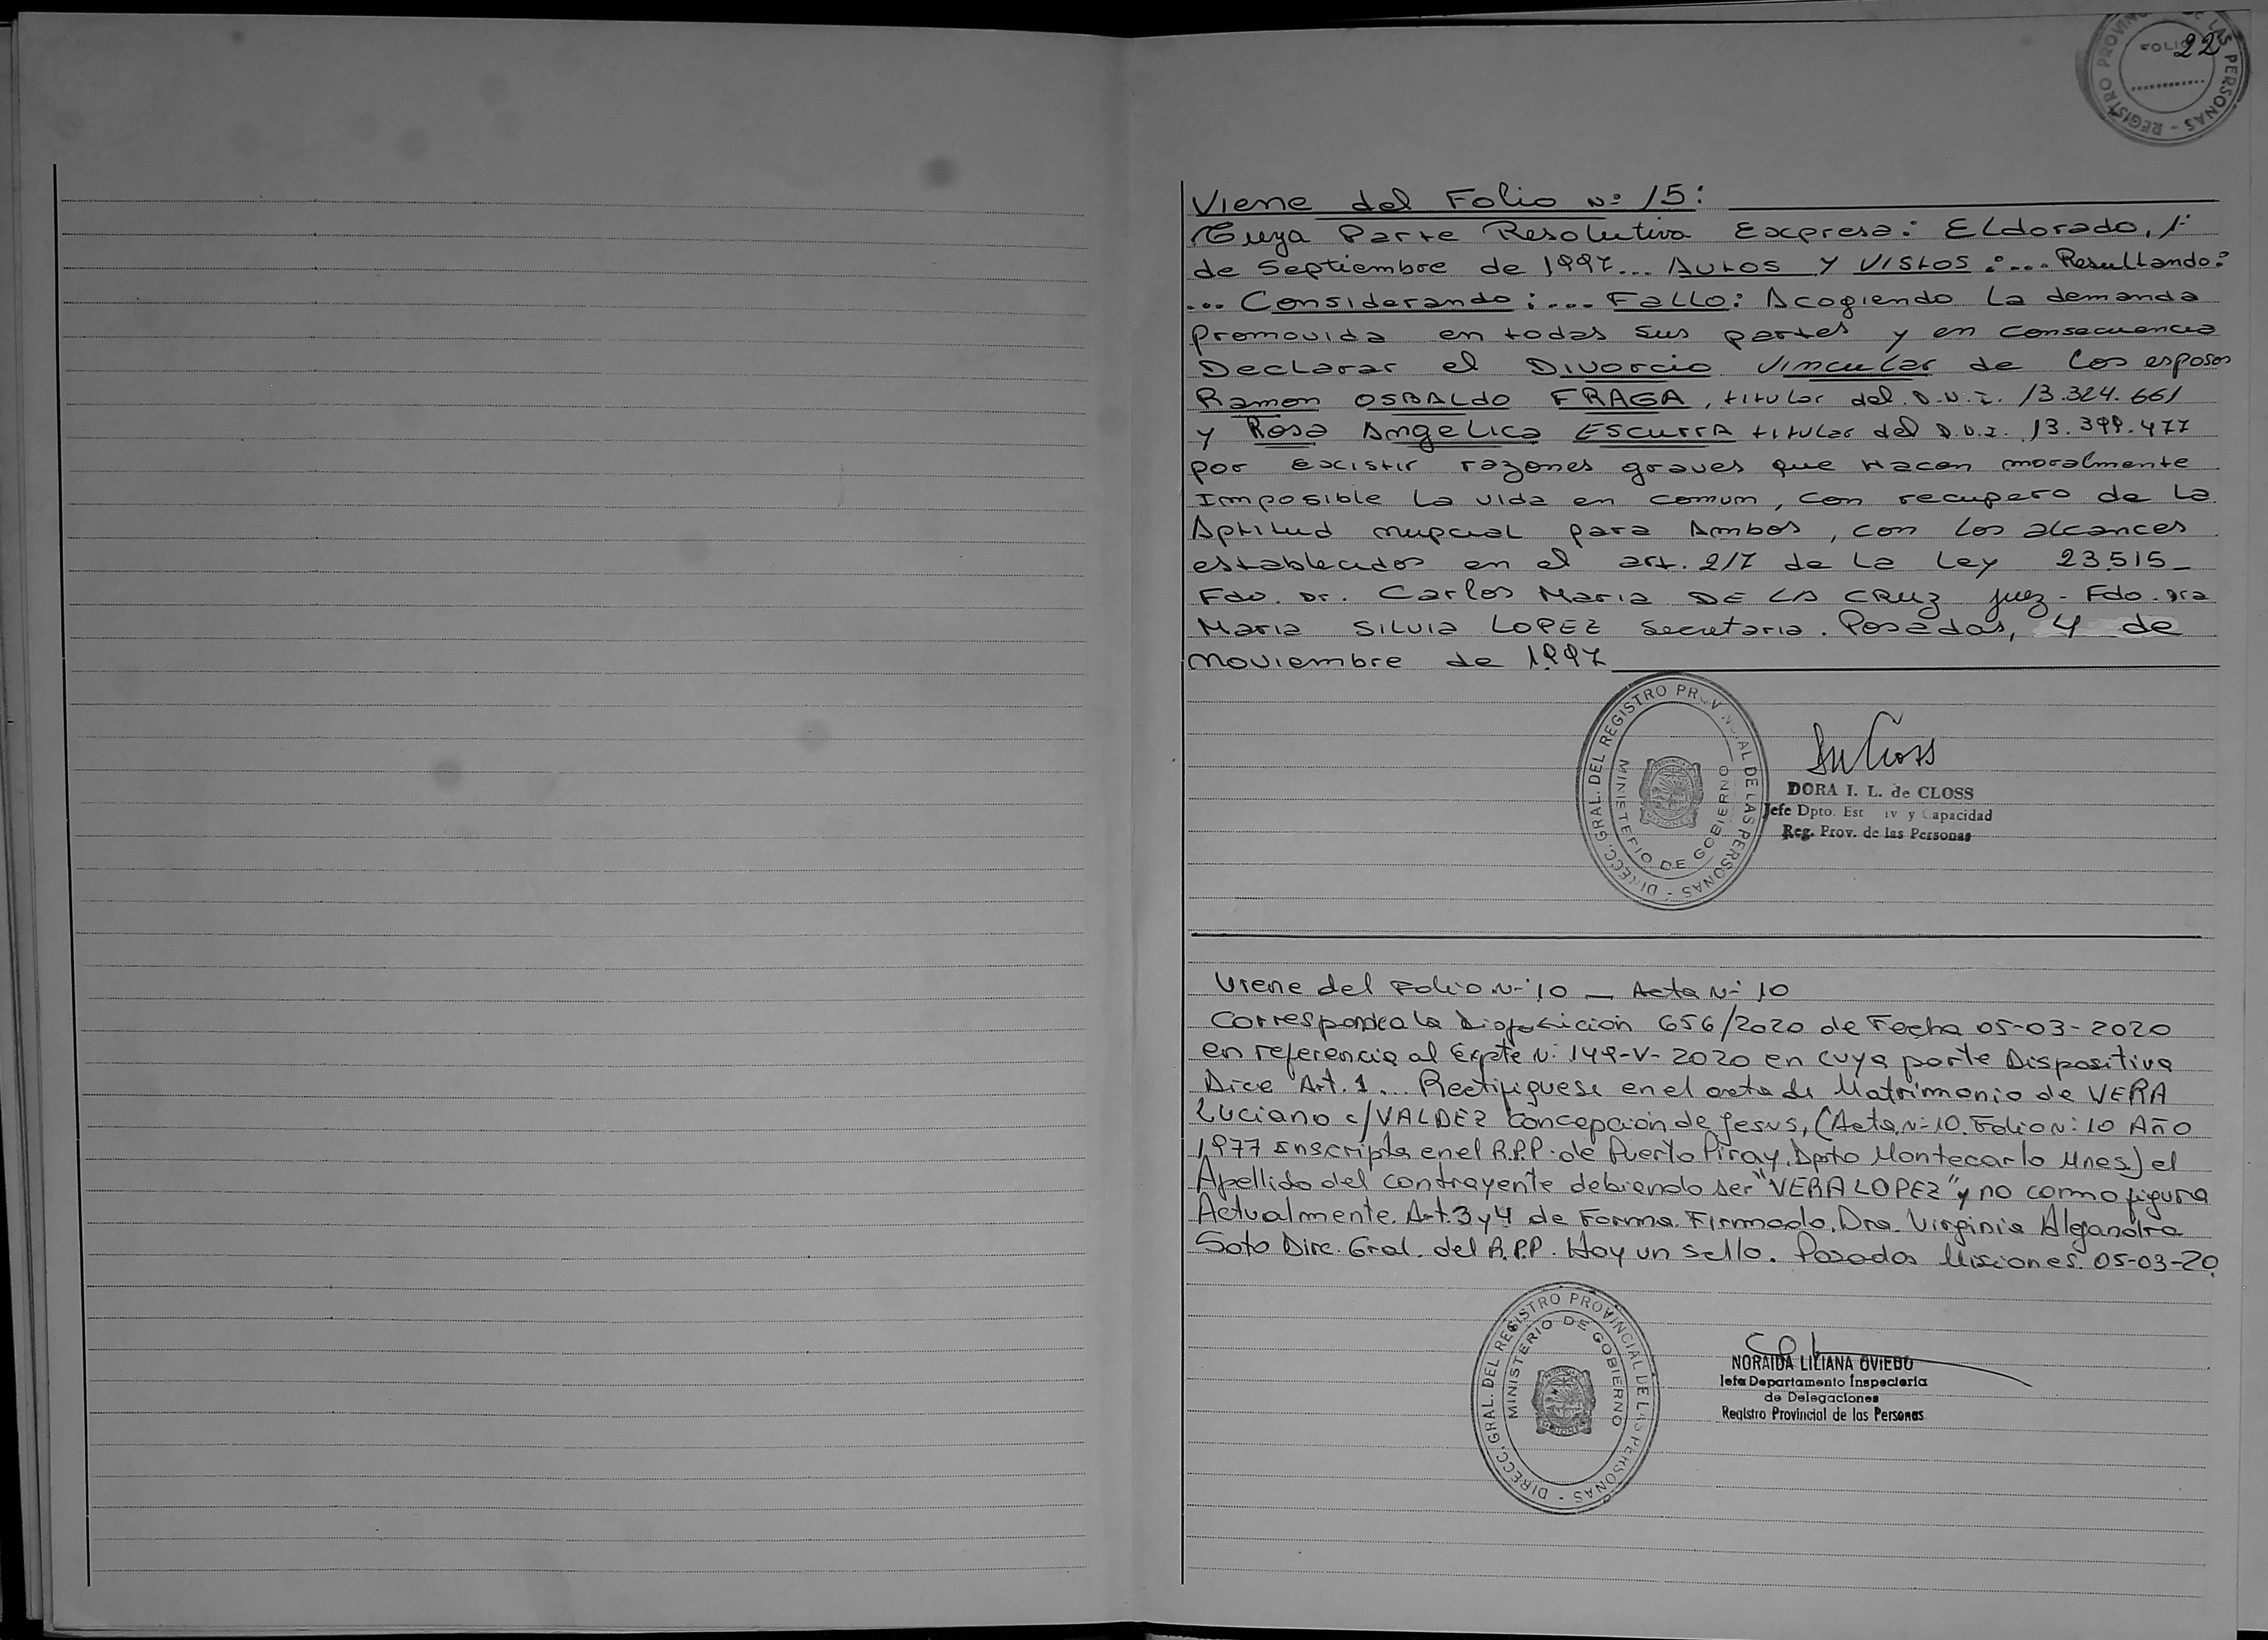 REGISTRO PROVINCIAL DE LAS PERSONAS
FOLIO 22
Viene del Folio Nº 15:
Cuya Parte Resolutiva Expresa: ELdorado, 1º
de Septiembre de 1997... AUTOS Y VISTOS:... Resultando:
... Considerando:... Fallo: Acogiendo La demanda
promovida en todas sus partes y en consecuencia
Declarar el Divorcio Vincular de Los esposos
Ramon OSBALdo FRAGA, titular del D.N.I. 13.324.661
y Rosa Angelica ESCURRA titular del D.N.I. 13.399.477
por Excistir razones graves que Hacen moralmente
Imposible La vida en comun, con recupero de La
Aptitud nupcial para Ambos, con los alcances
establecidos en el art. 217 de La Ley 23.515_
Fdo. Dr. Carlos Maria DE LA CRUZ juez - Fdo. Dra
Maria SILVIA LOPEZ secretaria. Posadas, 4 de
Noviembre de 1997
DIRECC. GRAL. DEL REGISTRO PROVINCIAL DE LAS PERSONAS -
MINISTERIO DE GOBIERNO
DORA I. L. de CLOSS
Jefe Dpto. Est iv y Capacidad
Reg. Prov. de las Personas
Viene del Folio Nº 10 _ Acta Nº 10
Corresponde a la Disposición 656/2020 de Fecha 05-03-2020
en referencia al Expte Nº 149-V-2020 en cuya parte Dispositiva
Dice Art. 1... Rectifiquese en el acta de Matrimonio de VERA
Luciano c/VALDEZ Concepción de Jesus, (Acta Nº 10. Folio Nº: 10 Año
1977 Inscripta en el R.P.P. de Puerto Piray. Dpto Montecarlo Mnes) el
Apellido del contrayente debiendo ser "VERA LOPEZ" y no como figura
Actualmente. Art. 3 y 4 de Forma. Firmado. Dra. Virginia Alejandra
Soto Dire. Gral. del R.P.P. Hay un sello. Posadas Misiones. 05-03-20.
DIRECC. GRAL. DEL REGISTRO PROVINCIAL DE LAS PERSONAS -
MINISTERIO DE GOBIERNO
NORAIDA LILIANA OVIEDO
Jefa Departamento Inspectoria
de Delegaciones
Registro Provincial de las Personas